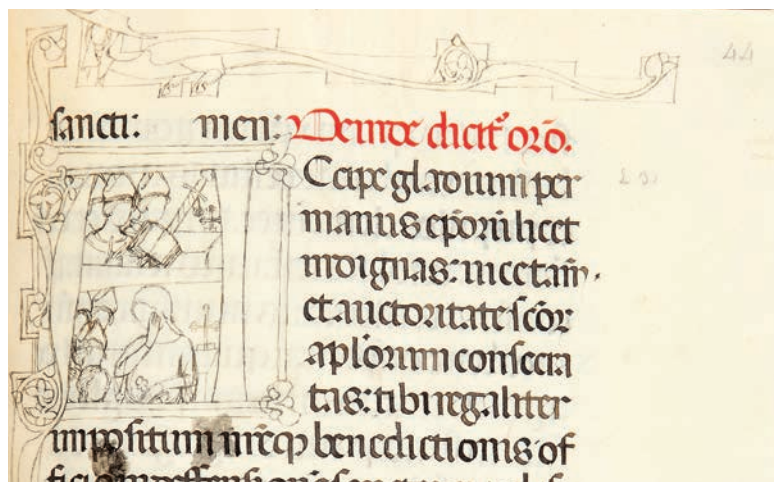 44
sancti: men: Deinde dicit᷑ or̄o.
Ccipe gladium per
manus ep̄orū licet
indignas: uice tam̄
et auctoritate sc̄or
apl̄orum consecra
tas: tibi regaliter
impositum nr̄eqȝ benedictionis of